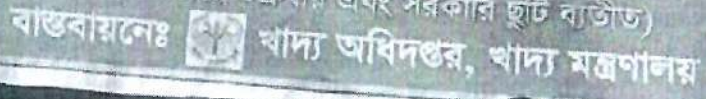 এবং সরকারি ছুটি ব্যতীত)
বাস্তবায়নেঃ খাদ্য অধিদপ্তর, খাদ্য মন্ত্রণালয়